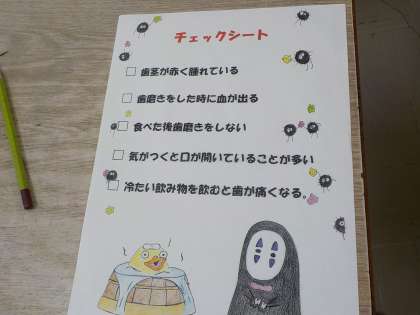 チェックシート
□ 歯茎が赤く腫れている
□ 歯磨きをした時に血が出る
□ 食べた後歯磨きをしない
□ 気がつくと口が開いていることが多い
□ 冷たい飲み物を飲むと歯が痛くなる。